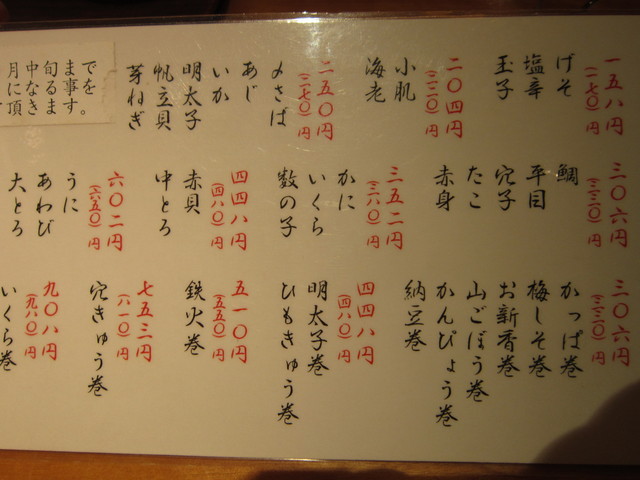 一五八円
(一七〇)円
げそ
塩辛
玉子
二〇四円
(二二〇)円
小肌
海老
二五〇円
(二七〇)円
〆さば
あじ
いか
明太子
帆立貝
芽ねぎ
月中旬まで
になる事を
頂きます。
三〇六円
(三三〇)円
鯛
平目
穴子
たこ
赤身
三五二円
(三八〇)円
かに
いくら
数の子
四四八円
(四八〇)円
赤貝
中とろ
六〇二円
(六五〇)円
うに
あわび
大とろ
三〇六円
(三三〇)円
かっぱ巻
梅しそ巻
お新香巻
山ごぼう巻
かんぴょう巻
納豆巻
四四八円
(四八〇)円
明太子巻
ひもきゅう巻
五一〇円
(五五〇)円
鉄火巻
七五三円
(八一〇)円
穴きゅう巻
九〇八円
(九八〇)円
いくら巻